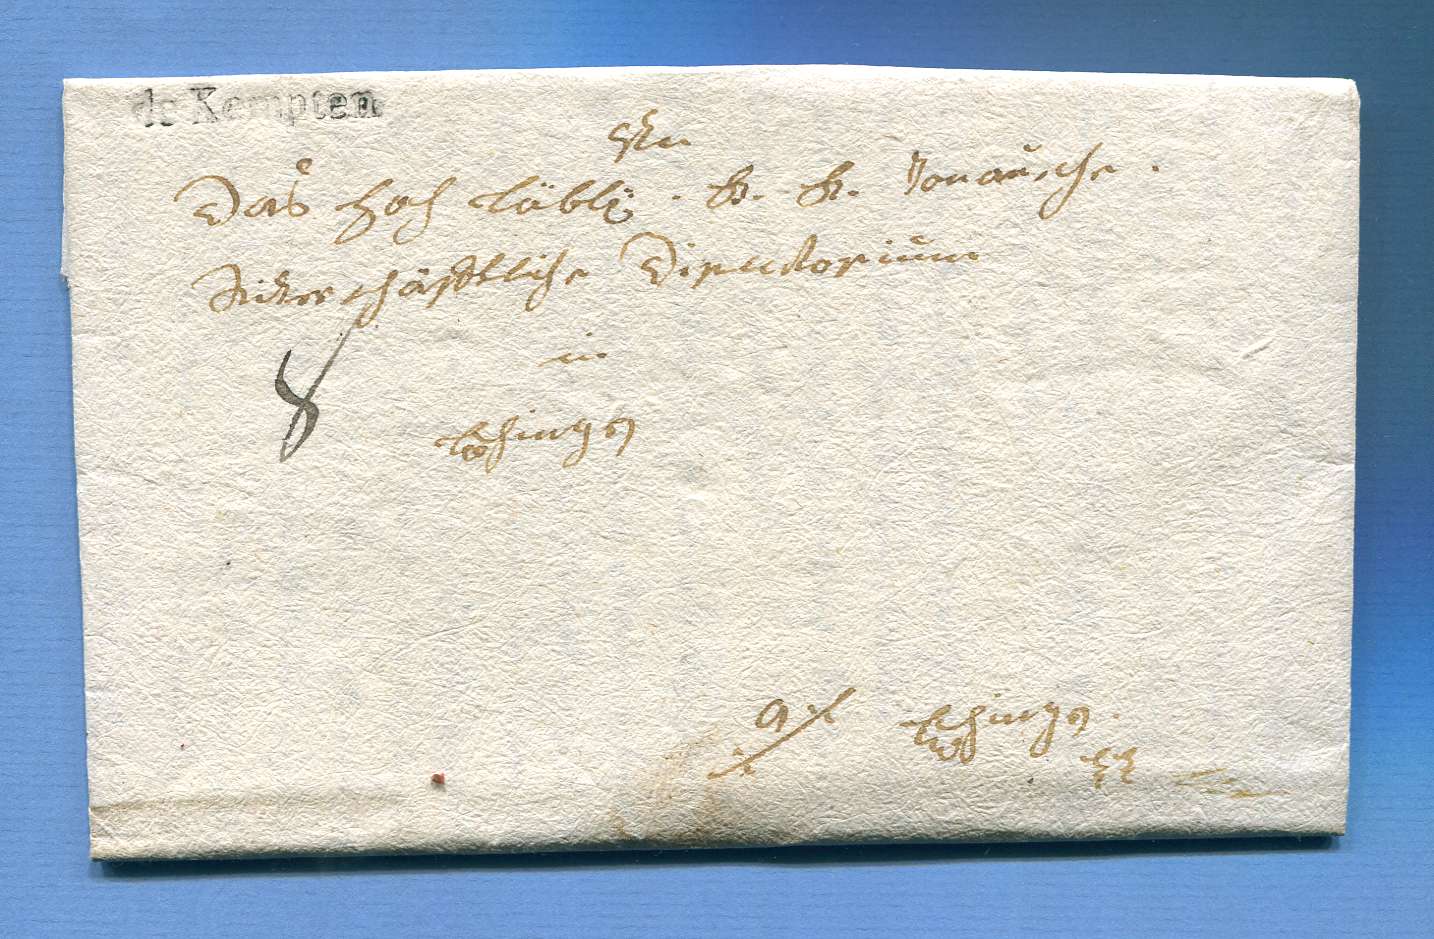 de Kempten
An
Das Hoch löbl. K. K. Donauische
Ritterschäftliche Direcktorium
in
Ehingen
8
Ehingen